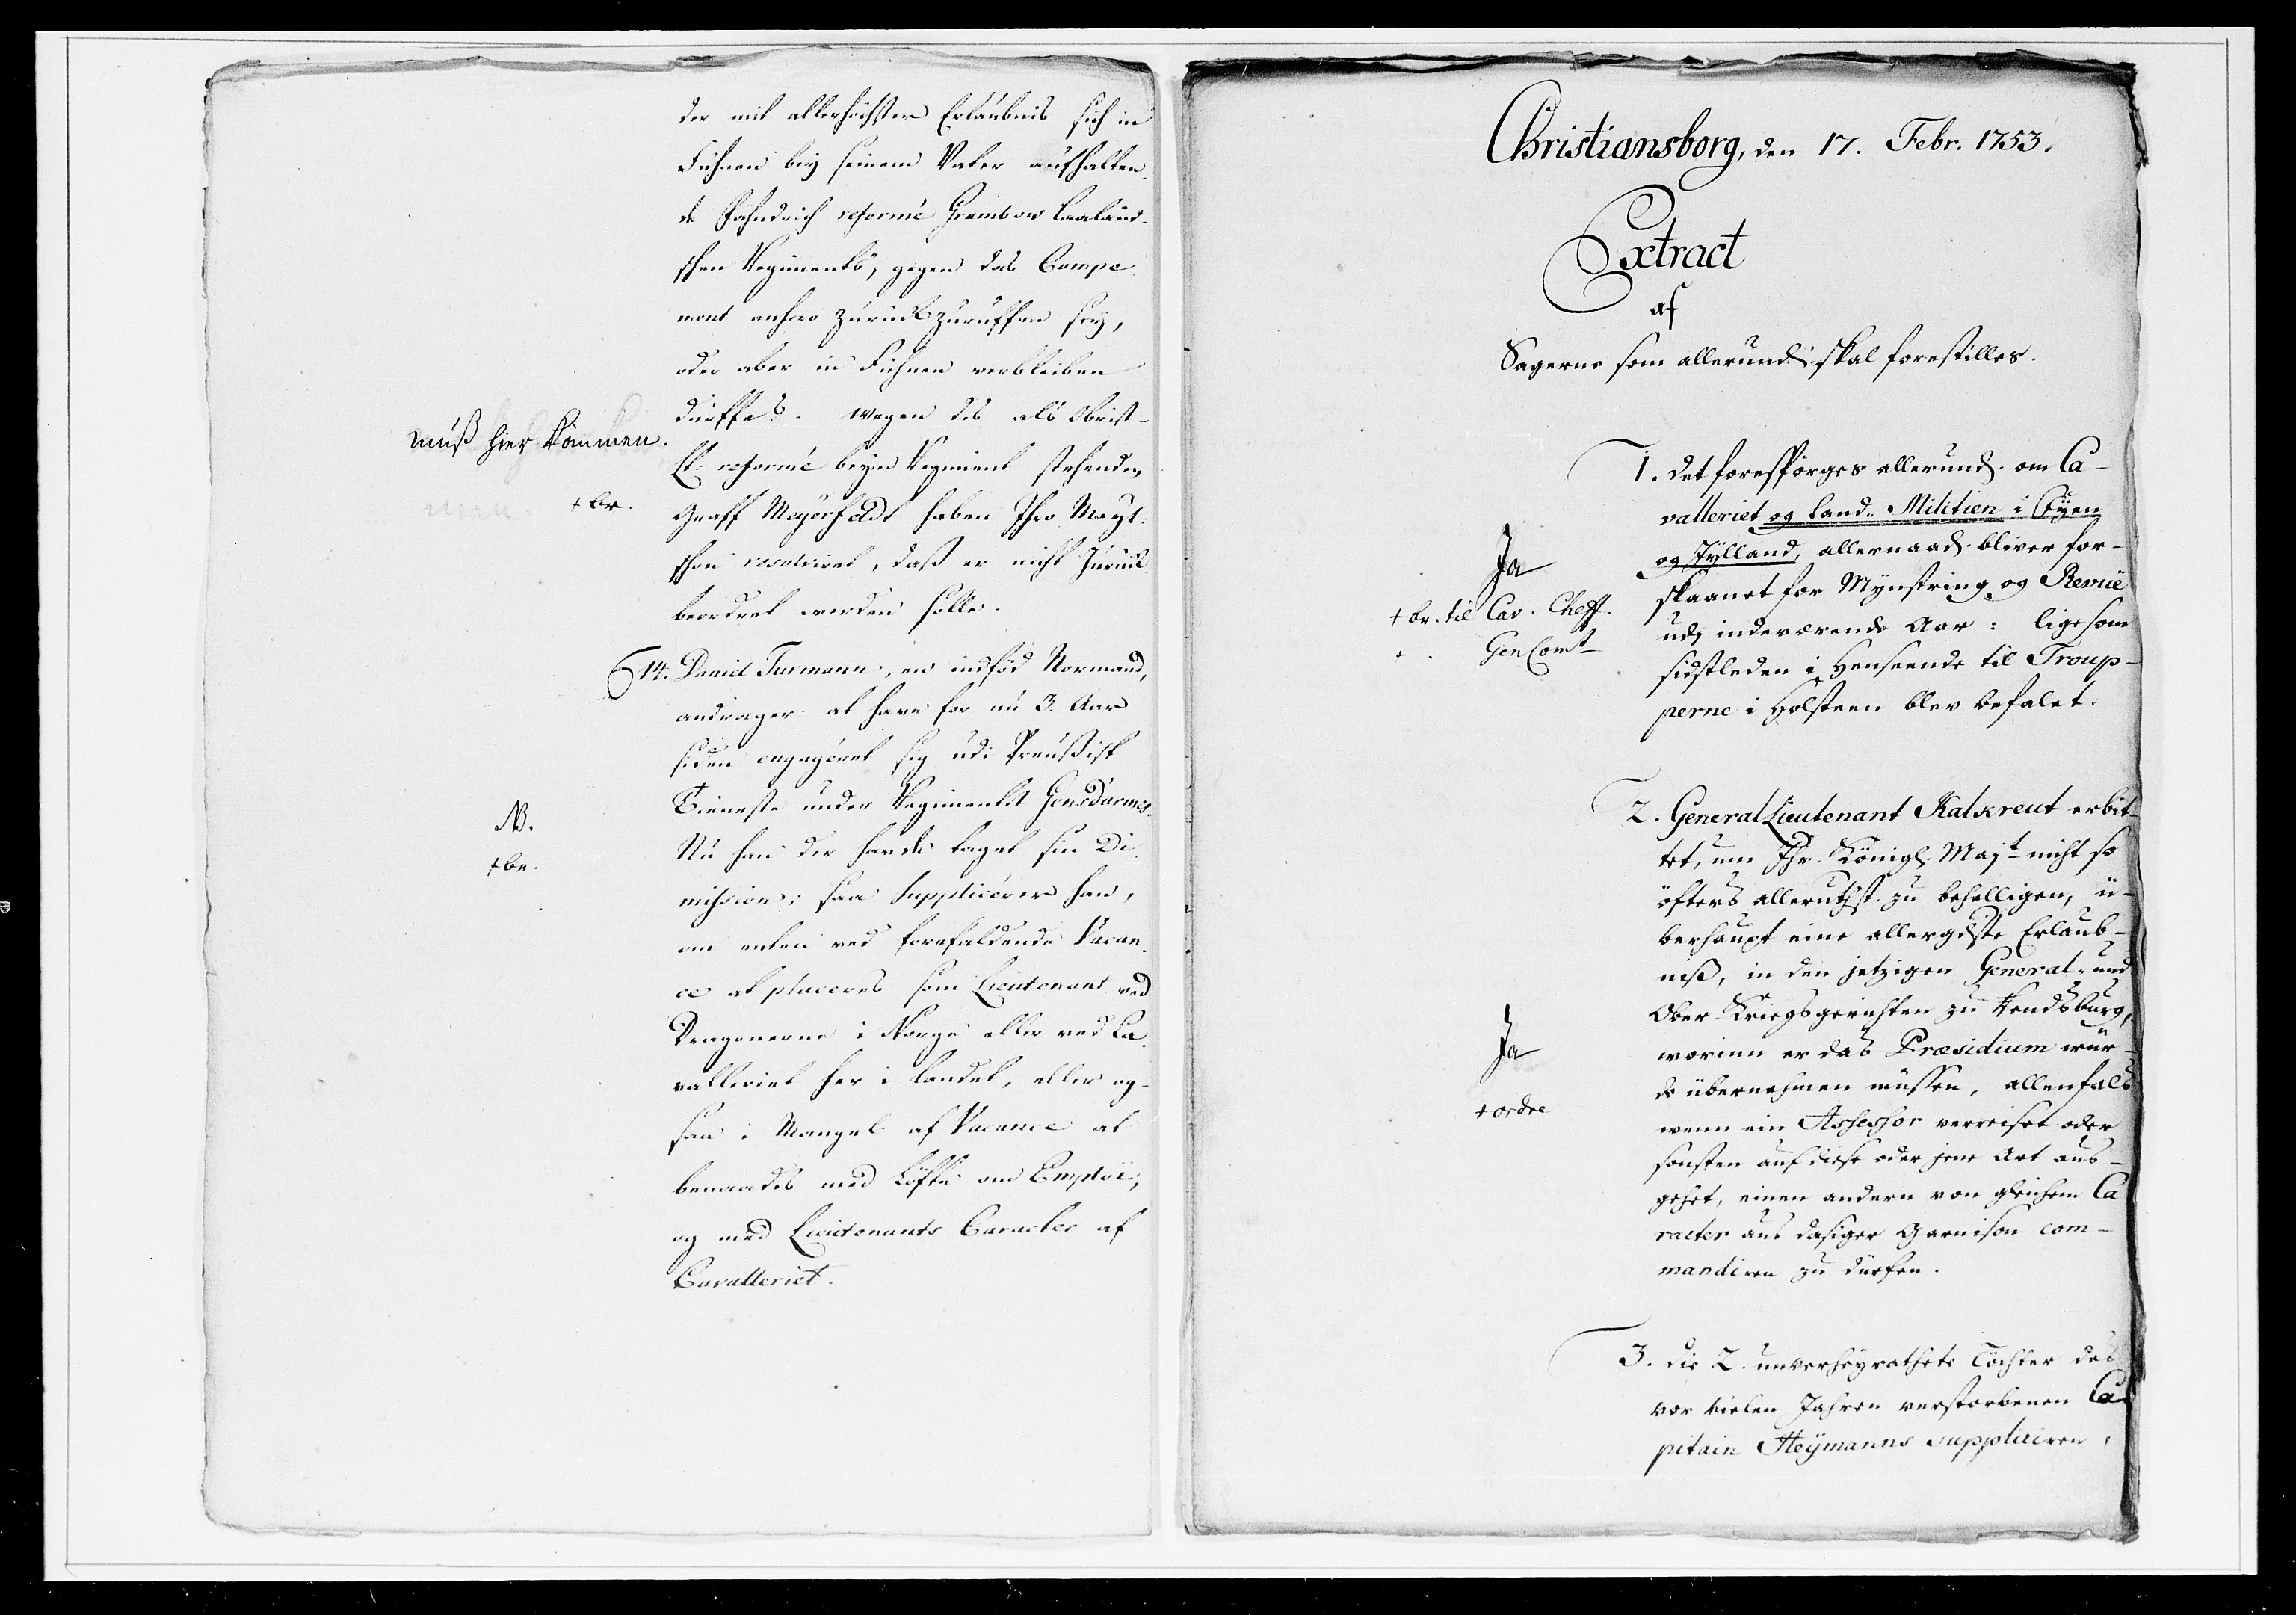 der mit allerhöchster Erlaubnis sich in
Fühnen bey seinem Vater aufhalten-
de Fähndrich reformé Grambow Laaländ-
schen Regiments, gegen das Campe-
ment anhero zurückzuruffen sey,
oder aber in Fühnen verbleiben
dürffe. wegen des als Obrist-
Lt. reformé beym Regiment stehenden
Graff Meyerfeldt haben Ihro Mayt.
schon resolviret, daß er nicht zurück
beordret werden solle.
muß hier kommen.
+ br.
14. Daniel Turmann, en indfød Normand,
andrager at have for nu 3. Aar
siden engageret sig udi Preussisk
Tieneste under Regimentet Gensdarmes.
Nu han der havde taget sin Di-
mission; saa supplicerer han,
om enten ved forefaldende Vacan-
ce at placeres som Lieutenant ved
Dragonerne i Norge eller ved Ca-
valleriet her i Landet, eller og-
saa i Mangel af Vacance at
benaades med Løfte om Emploi,
og med Lieutenants Caracter af
Cavalleriet.
NB.
+ br.
Christiansborg, den 17. Febr. 1753.
Extract
af
Sagerne som allerund. skal forestilles.
1. Det forespørges allerund. om Ca-
valleriet og Land-Militien i Fyen
og Jylland, allernaad. bliver for-
skaanet for Mynstring og Revüe
udi indeværende Aar: ligesom
sidstleden i Henseende til Troup-
perne i Holsteen blev befalet.
Ja
+ br. til Cav. Cheff.
+ . Gen Comt
2. General Lieutenant Kalkreut erbit-
tet, um Ihr. Königl. Majt nicht so
öfters allerutst. zu behelligen, ü-
berhaupt eine allergdste Erlaub-
niß, in den jetzigen General- und
Ober-Kriegsgerichten zu Rendsburg,
worinn er das Præsidium wür-
de übernehmen müssen, allenfals
wenn ein Assessor verreiset oder
sonsten auf diese oder jene Art aus-
gehet, einen andern von gleichem Ca
racter aus dasiger Garnison com-
mandiren zu dürfen.
Ja
+ ordre
3. Die 2. unverheyrathete Töchter des
vor vielen Jahren verstorbenen Ca-
pitain Heymanns suppliciren,